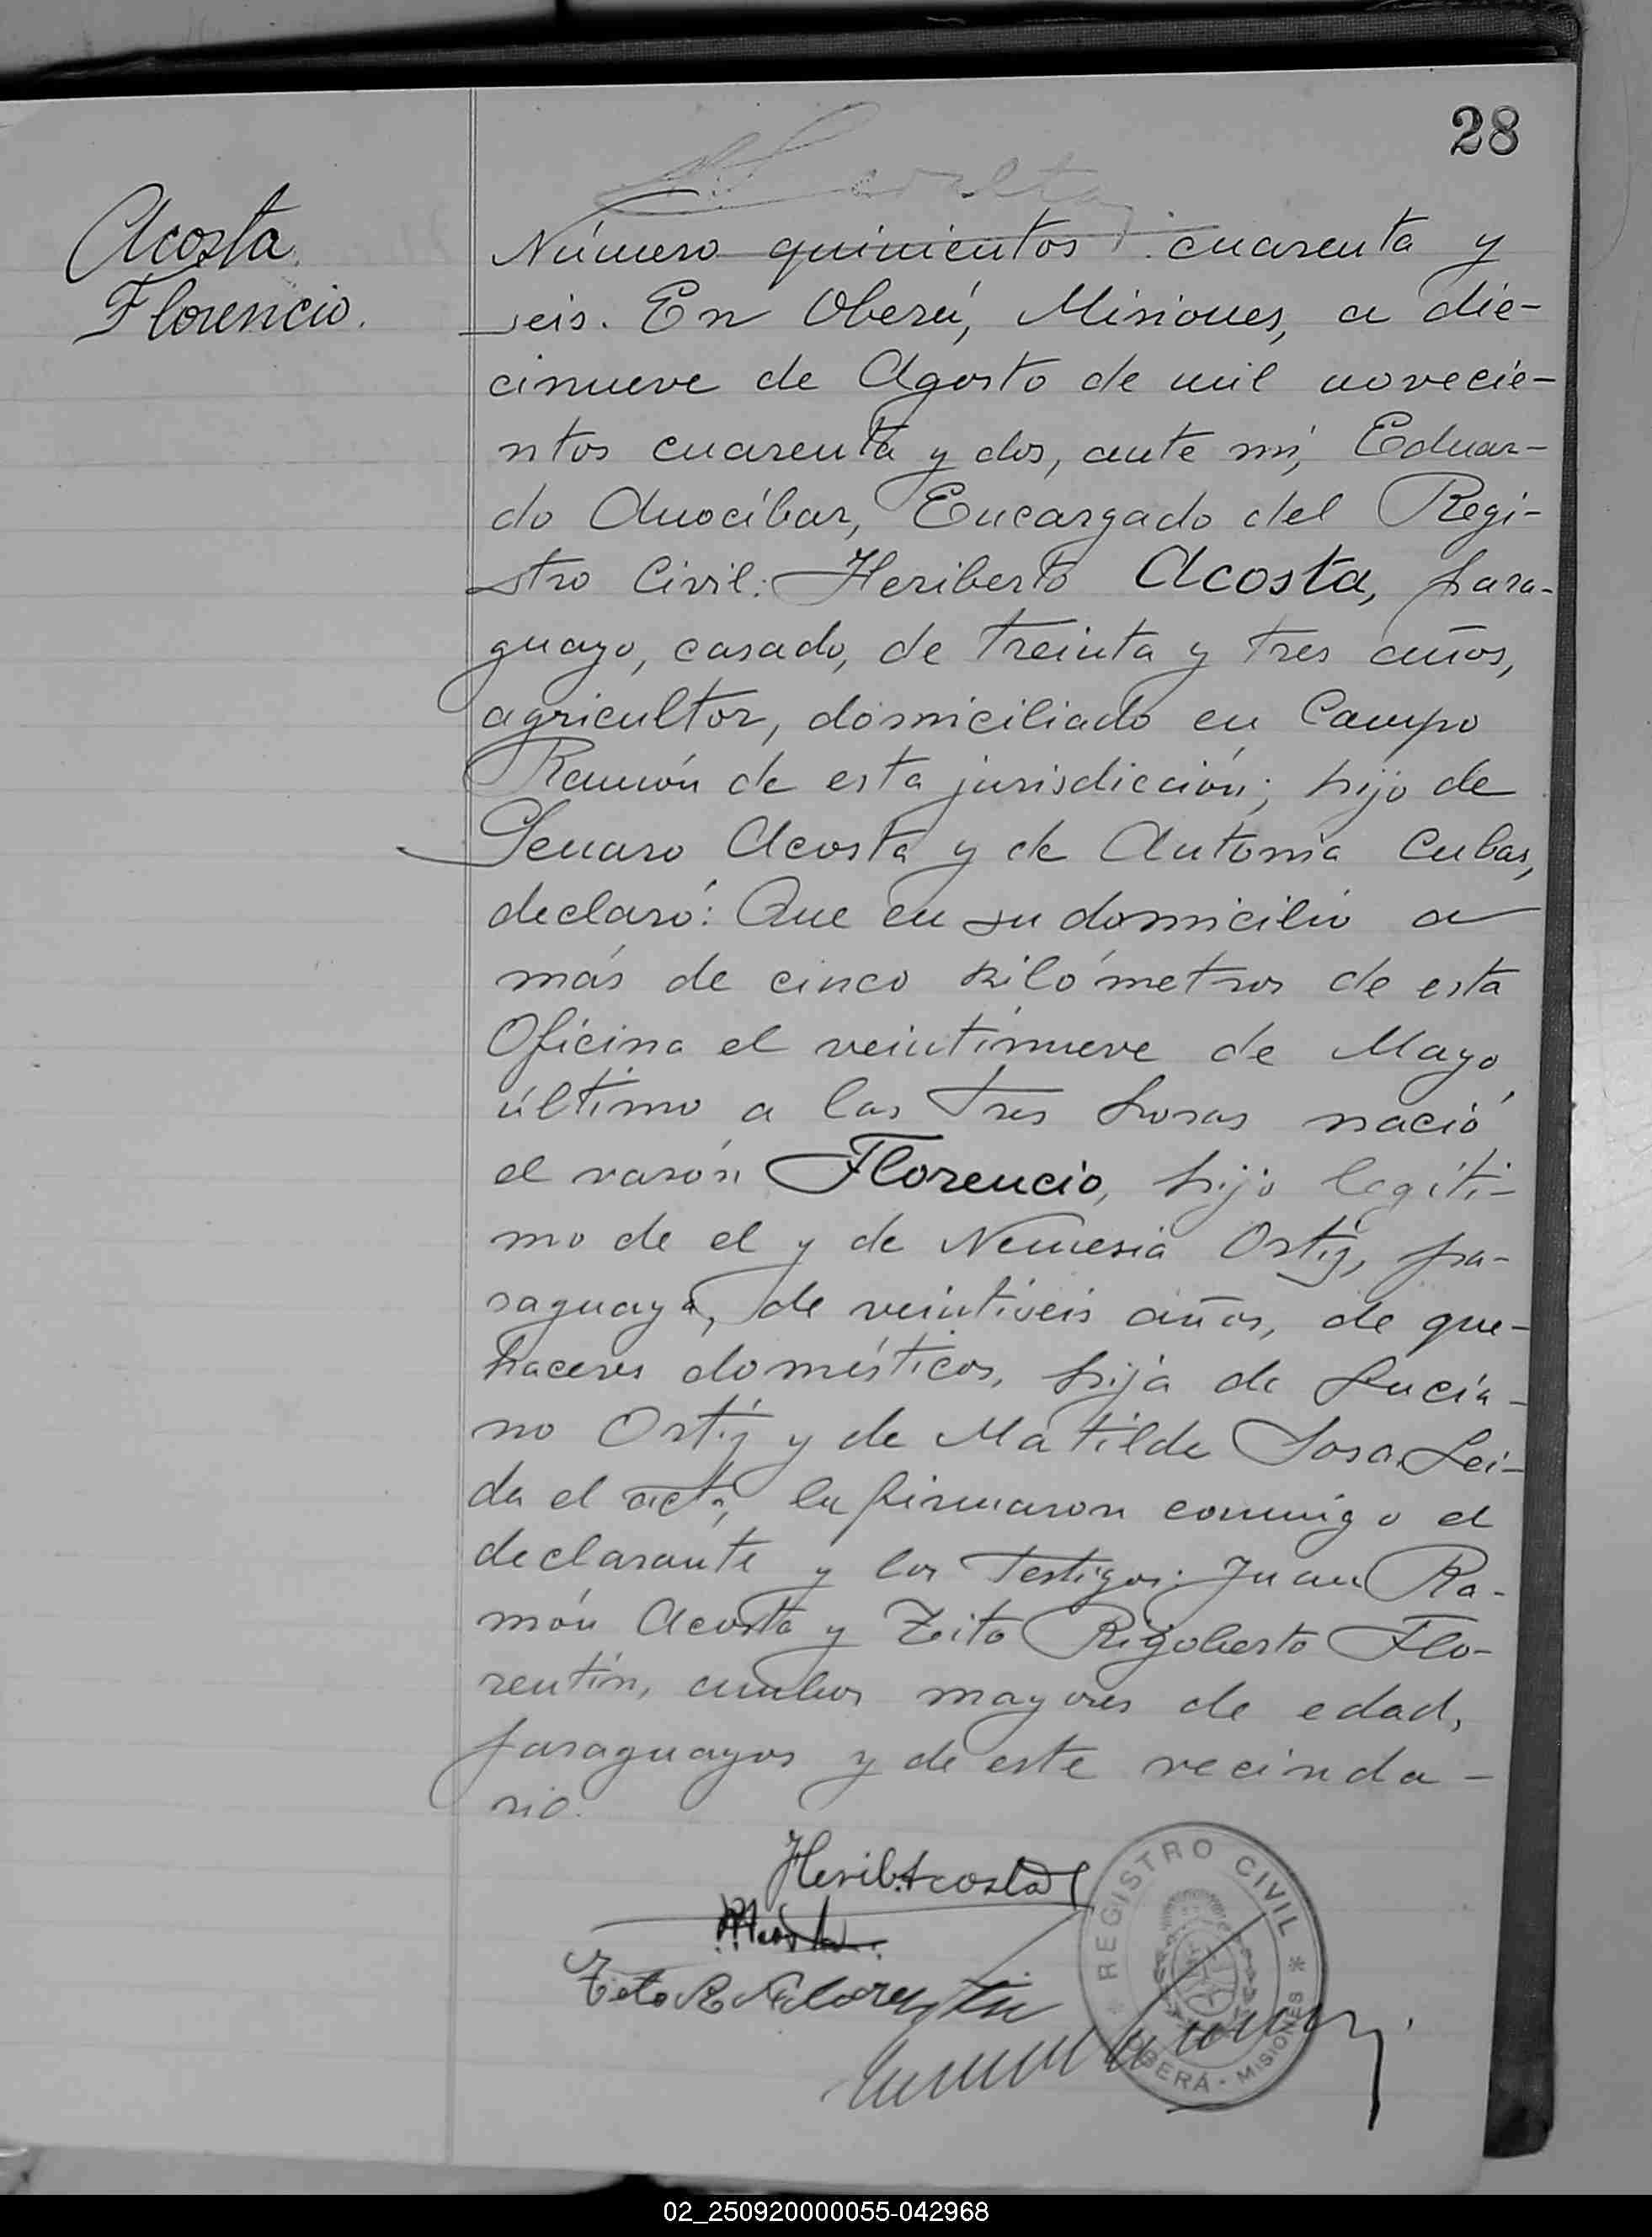 28
Acosta
Florencio.
Número quinientos cuarenta y
seis. En Oberá, Misiones, a die-
cinueve de Agosto de mil novecie-
ntos cuarenta y dos, ante mí, Eduar-
do Anocíbar, Encargado del Regi-
stro Civil: Heriberto Acosta, para-
guayo, casado, de treinta y tres años,
agricultor, domiciliado en Campo
Ramón de esta jurisdicción; hijo de
Genaro Acosta y de Antonia Cubas,
declaró: Que en su domicilio a
más de cinco kilómetros de esta
Oficina el veintinueve de Mayo
último a las tres horas nació
el varón Florencio, hijo legíti-
mo de el y de Nemesia Ortíz, pa-
raguaya, de veintiseis años, de que-
haceres domésticos, hija de Lucia-
no Ortíz y de Matilde Sosa. Leí-
da el acta, la firmaron conmigo el
declarante y los testigos: Juan Ra-
món Acosta y Tito Rigoberto Flo-
rentín, ambos mayores de edad,
paraguayos y de este vecinda-
rio.
Herib. Acosta
Tito R. Florentín
REGISTRO CIVIL
* OBERÁ - MISIONES *
02_250920000055-042968